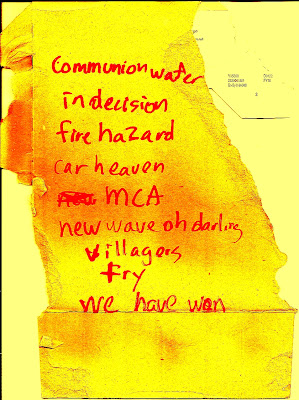 Communion wafer
indecision
fire hazard
car heaven
MCA
new wave oh darling
villagers
fry
we have won